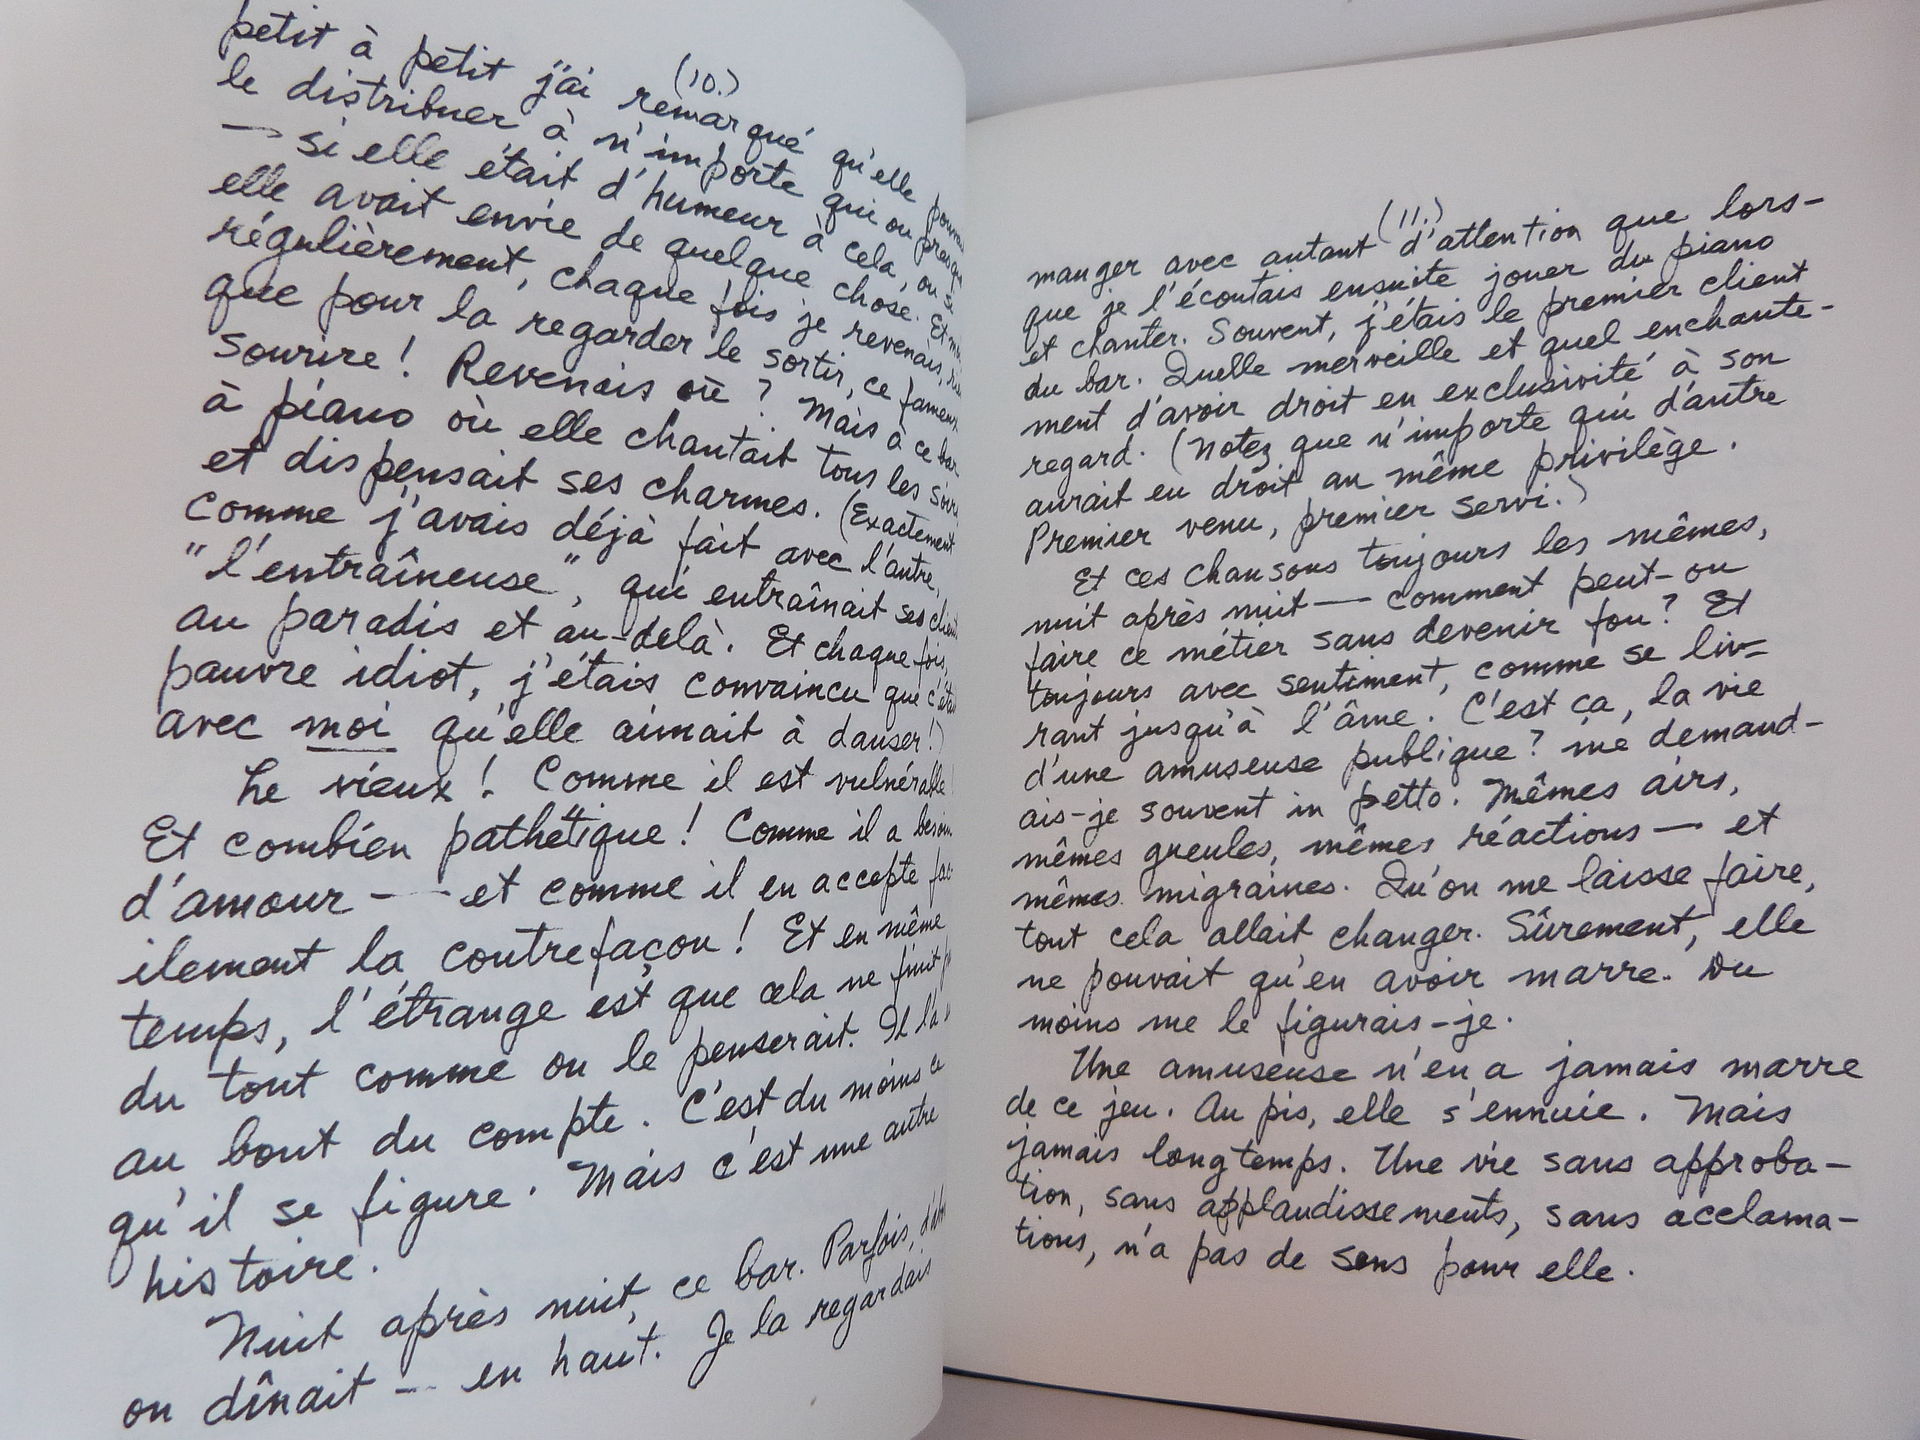 (10.)
petit à petit j'ai remarqué qu'elle
le distribuer à n'importe qui ou
— si elle était d'humeur à cela, ou si
elle avait envie de quelque chose. Et
régulièrement, chaque fois je revenais,
que pour la regarder le sortir, ce fameux
sourire! Revenais où? Mais à ce bar
à piano où elle chantait tous les
et dispensait ses charmes. (Exactement
comme j'avais déjà fait avec l'autre,
"l'entraîneuse", qui entraînait ses
au paradis et au-delà. Et chaque fois,
pauvre idiot, j'étais convaincu que
avec moi qu'elle aimait à danser!)
Le vieux! Comme il est vulnérable
Et combien pathétique! Comme il a besoin
d'amour — et comme il en accepte fac-
ilement la contrefaçon! Et en même
temps, l'étrange est que cela ne finit
du tout comme on le penserait. Il l'a
au bout du compte. C'est du moins ce
qu'il se figure. Mais c'est une autre
histoire.
Nuit après nuit, ce bar. Parfois,
on dînait — en haut. Je la regardais
(11.)
manger avec autant d'attention que lors-
que je l'écoutais ensuite jouer du piano
et chanter. Souvent, j'étais le premier client
du bar. Quelle merveille et quel enchante-
ment d'avoir droit en exclusivité à son
regard. (Notez que n'importe qui d'autre
aurait eu droit au même privilège.
Premier venu, premier servi.)
Et ces chansons toujours les mêmes,
nuit après nuit — comment peut-on
faire ce métier sans devenir fou? Et
toujours avec sentiment, comme se liv-
rant jusqu'à l'âme. C'est ça, la vie
d'une amuseuse publique? me demand-
ais-je souvent in petto. Mêmes airs,
mêmes gueules, mêmes réactions — et
mêmes migraines. Qu'on me laisse faire,
tout cela allait changer. Sûrement, elle
ne pouvait qu'en avoir marre. Du
moins me le figurais-je.
Une amuseuse n'en a jamais marre
de ce jeu. Au pis, elle s'ennuie. Mais
jamais longtemps. Une vie sans approba-
tion, sans applaudissements, sans acclama-
tions, n'a pas de sens pour elle.